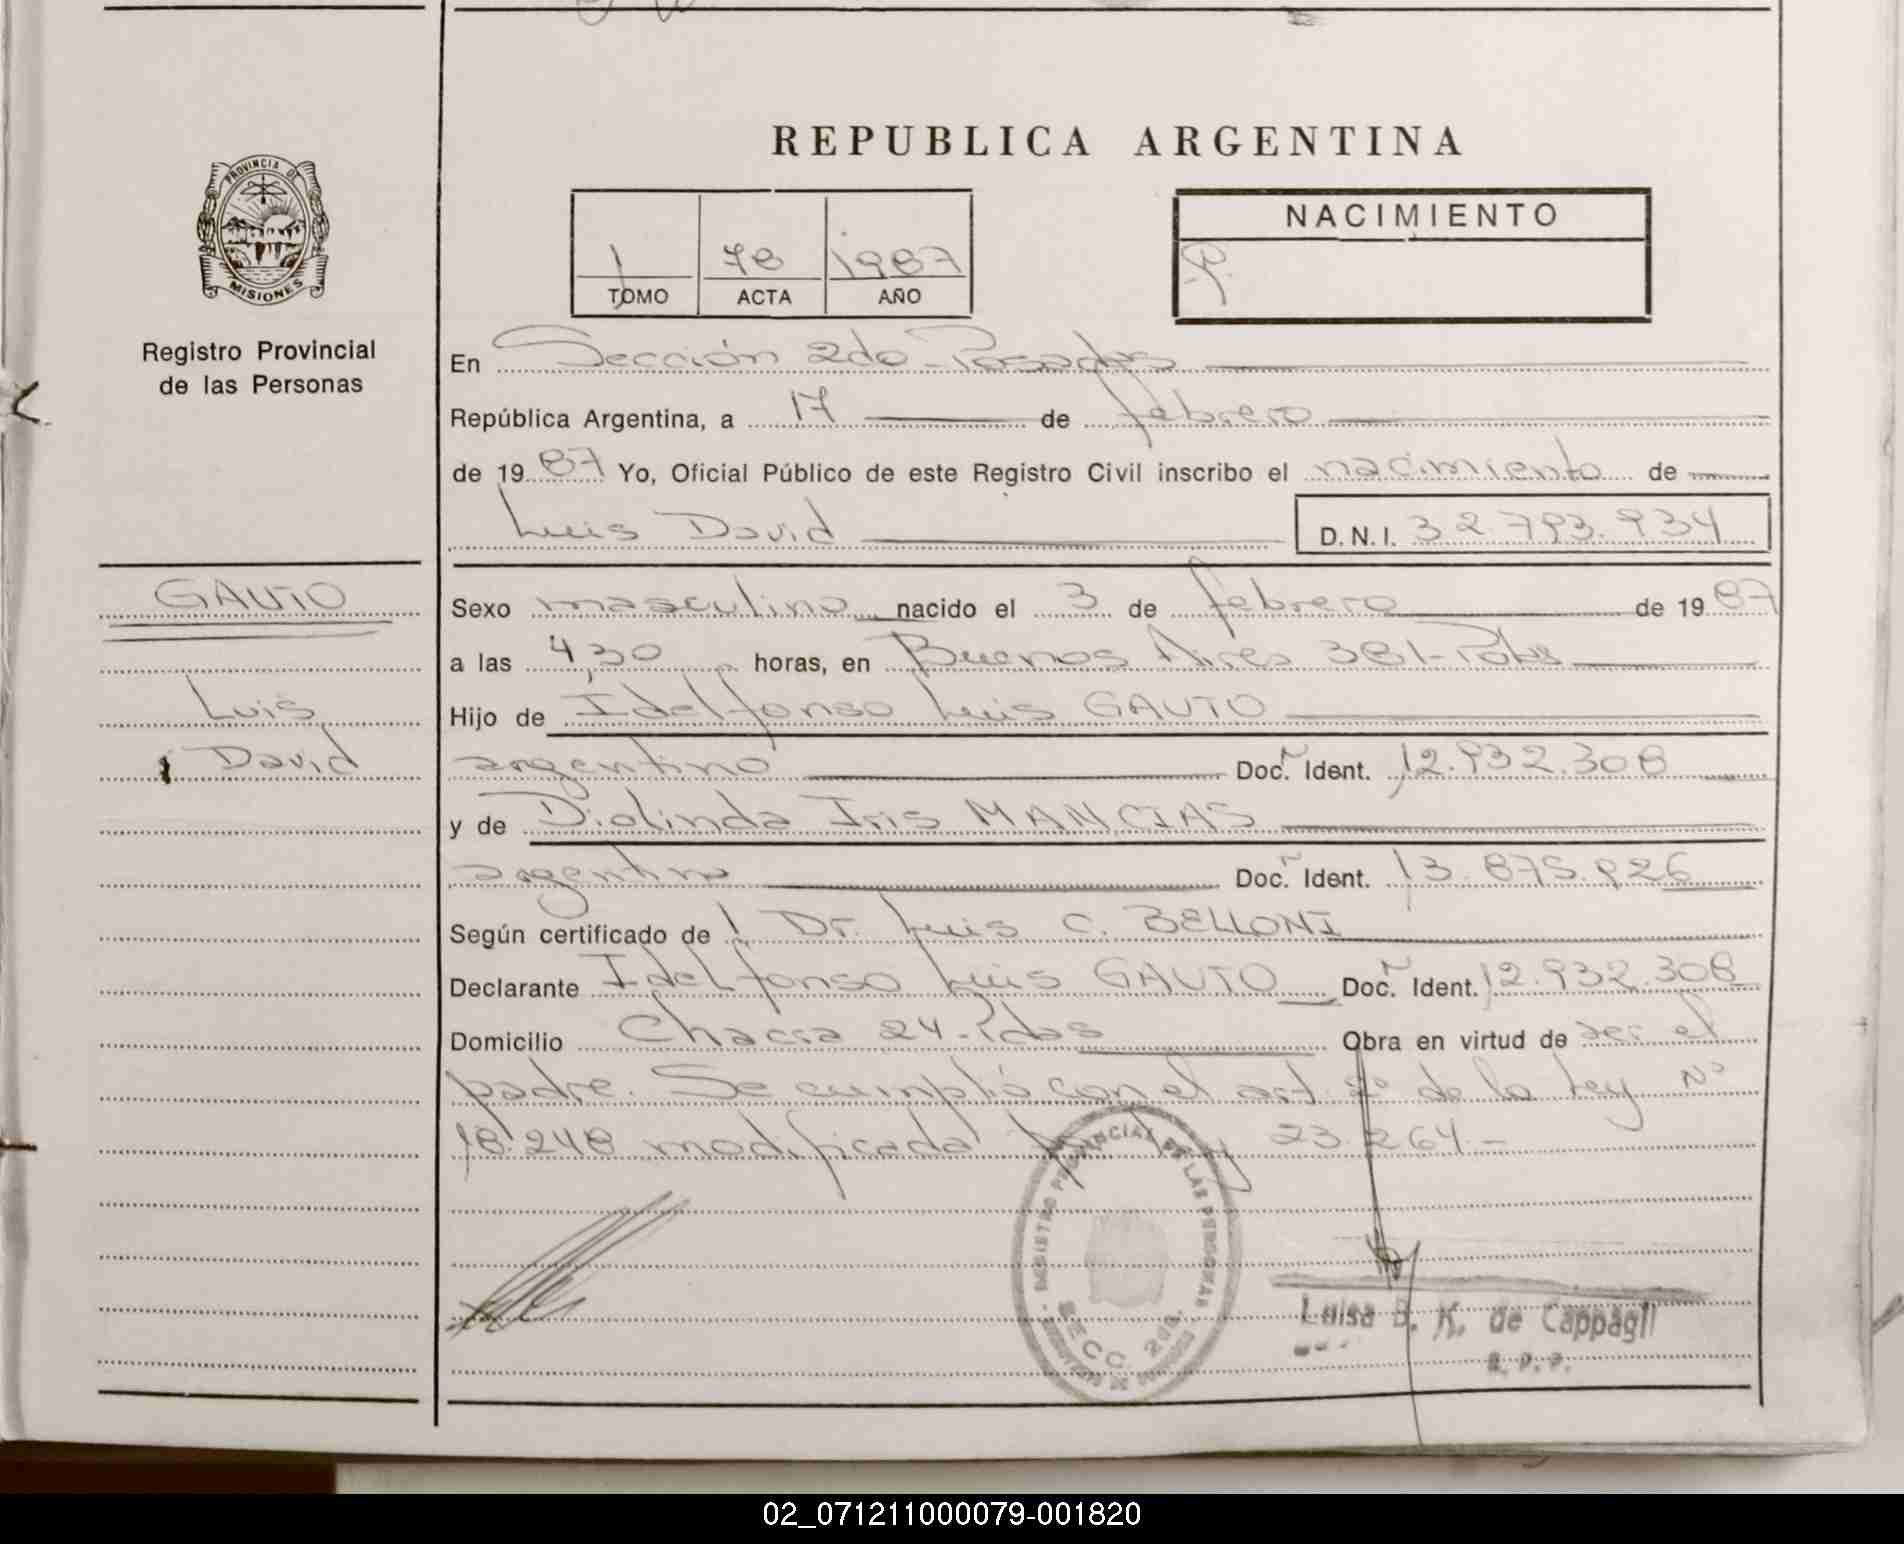 REPUBLICA ARGENTINA
PROVINCIA DE
MISIONES
Registro Provincial
de las Personas
1 78 1987
TOMO ACTA AÑO
NACIMIENTO
En Sección 2do - Posadas
República Argentina, a 17 de febrero
de 19 87 Yo, Oficial Público de este Registro Civil inscribo el nacimiento de
Luis David D.N.I. 32.793.934
GAUTO
Luis
David
Sexo masculino nacido el 3 de febrero de 19 87
a las 4,30 horas, en Buenos Aires 381-
Hijo de Idelfonso Luis GAUTO
argentino Doc. Ident. 12.932.308
y de Diolinda Iris MANCIAS
argentina Doc. Ident. 13.875.926
Según certificado de Dr. Luis C. BELLONI
Declarante Idelfonso Luis GAUTO Doc. Ident. 12.932.308
Domicilio Chacra 24-Pdas Obra en virtud de ser el
padre. Se cumplió con el art. 2º de la Ley Nº
18.248 modificada por Ley 23.264.-
REGISTRO PROVINCIAL DE LAS PERSONAS
SECC. 2da.
Luisa B. K. de Cappagli
02_071211000079-001820